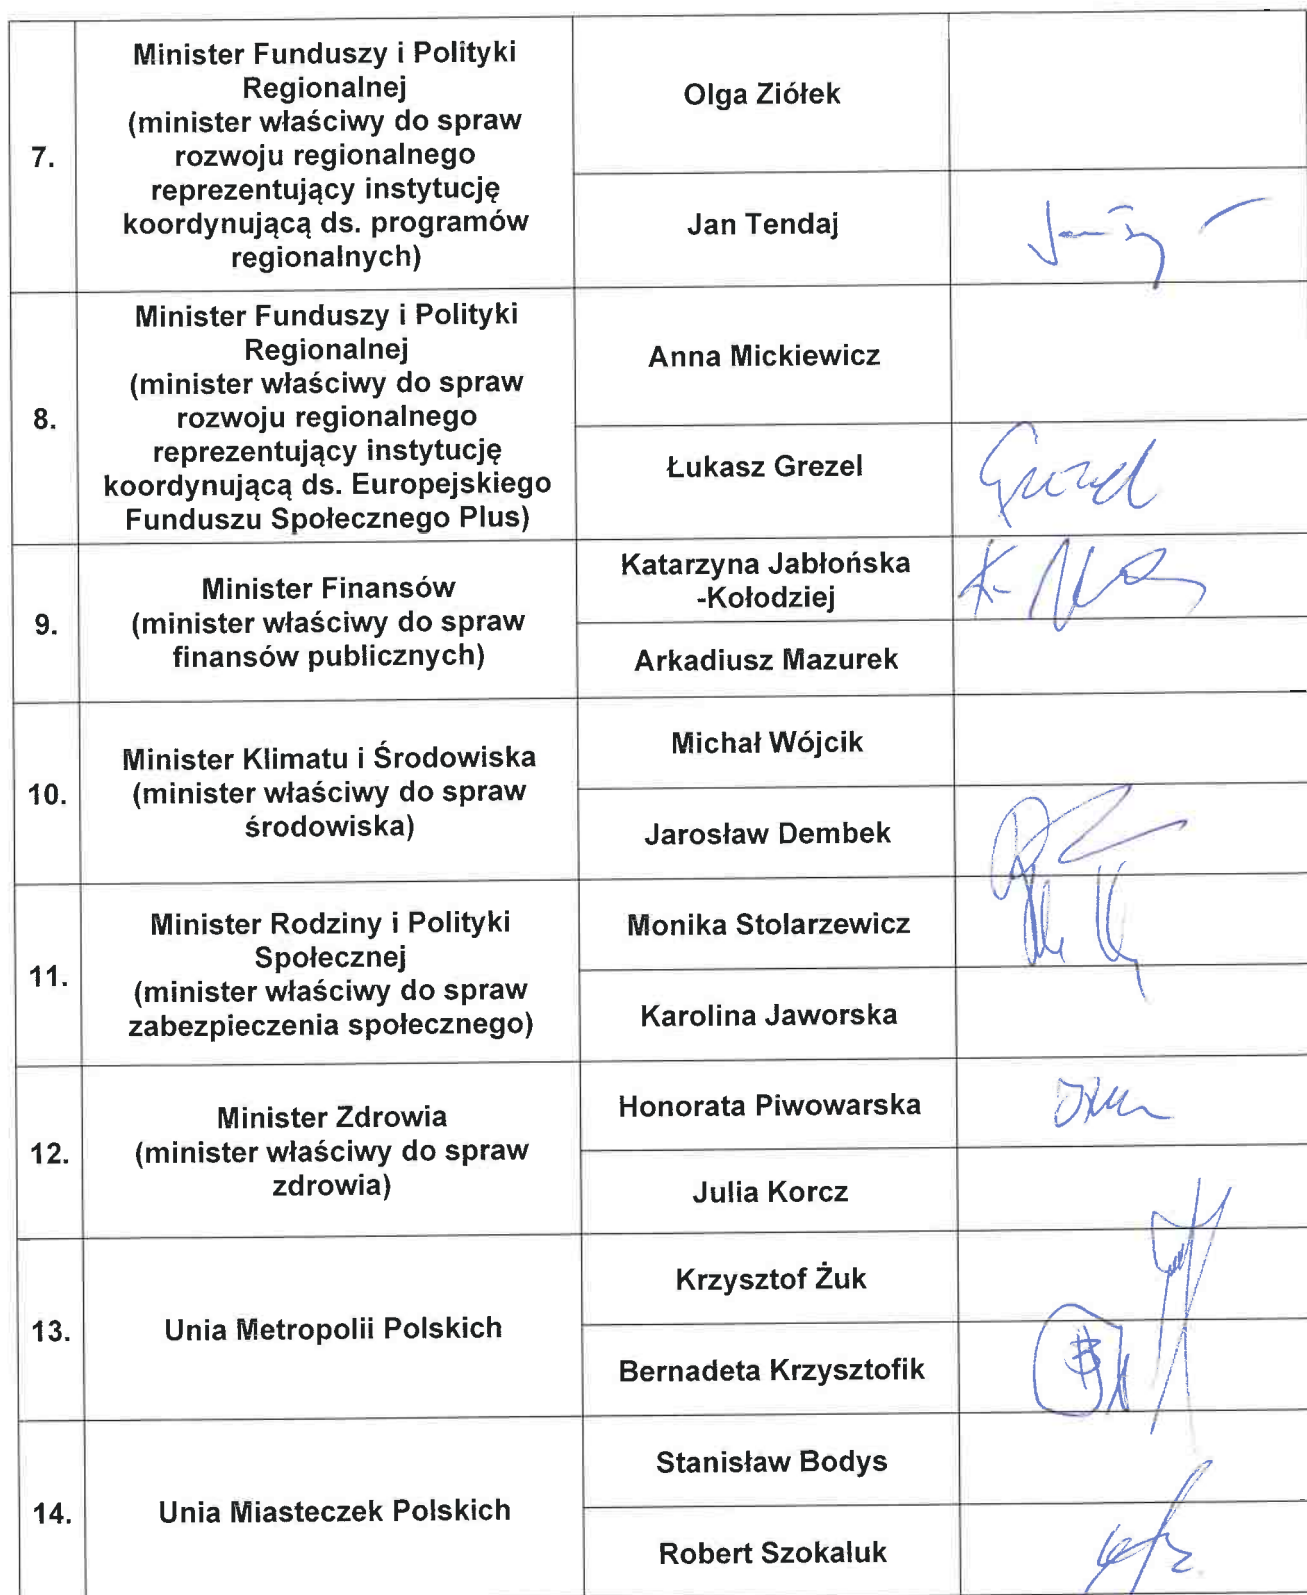 7.
Minister Funduszy i Polityki
Regionalnej
(minister właściwy do spraw
rozwoju regionalnego
reprezentujący instytucję
koordynującą ds. programów
regionalnych)
Olga Ziółek
Jan Tendaj
8.
Minister Funduszy i Polityki
Regionalnej
(minister właściwy do spraw
rozwoju regionalnego
reprezentujący instytucję
koordynującą ds. Europejskiego
Funduszu Społecznego Plus)
Anna Mickiewicz
Łukasz Grezel
Grezel
9.
Minister Finansów
(minister właściwy do spraw
finansów publicznych)
Katarzyna Jabłońska
-Kołodziej
Arkadiusz Mazurek
10.
Minister Klimatu i Środowiska
(minister właściwy do spraw
środowiska)
Michał Wójcik
Jarosław Dembek
11.
Minister Rodziny i Polityki
Społecznej
(minister właściwy do spraw
zabezpieczenia społecznego)
Monika Stolarzewicz
Karolina Jaworska
12.
Minister Zdrowia
(minister właściwy do spraw
zdrowia)
Honorata Piwowarska
Julia Korcz
13.
Unia Metropolii Polskich
Krzysztof Żuk
Bernadeta Krzysztofik
14.
Unia Miasteczek Polskich
Stanisław Bodys
Robert Szokaluk